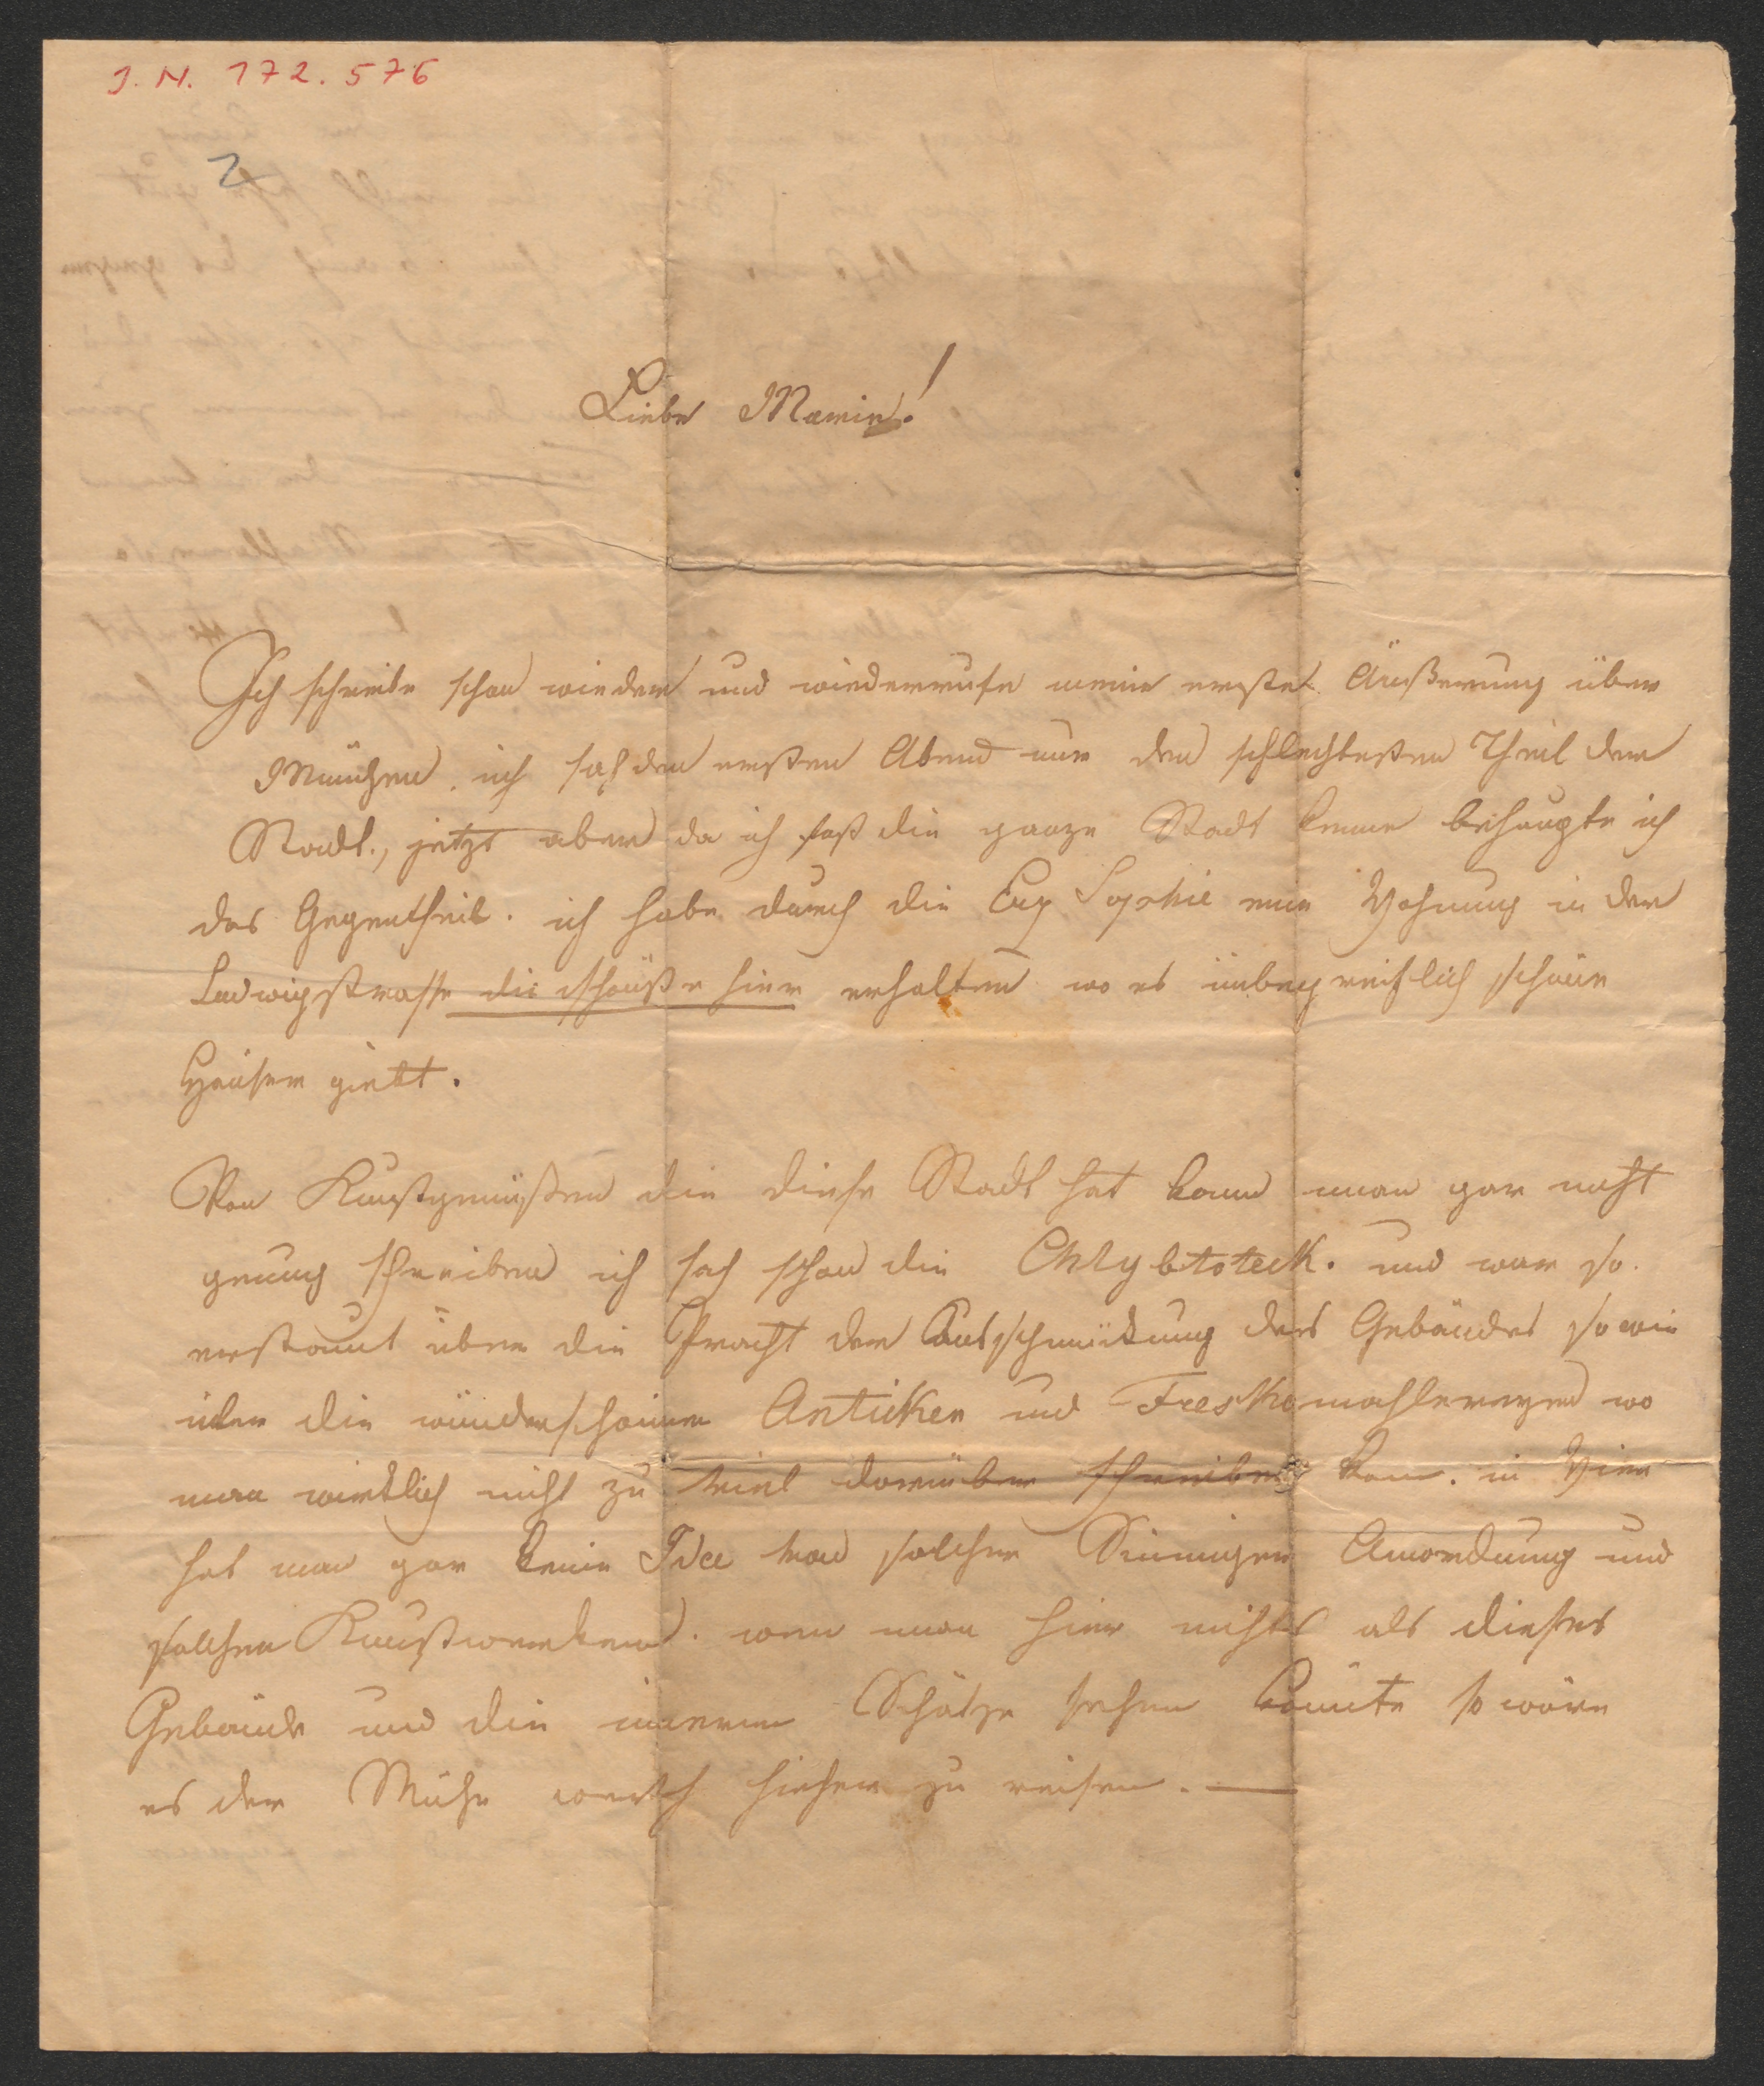 J. N. 172.576
2
Liebe Marie!
Ich schreibe schon wieder und wiederrufe meine erste Äußerung über
München. ich sah den ersten Abend nur den schlechtesten Theil der
Stadt., jetzt aber da ich fast die ganze Stadt kenne behaupte ich
das Gegentheil. ich habe durch die Sophie eine Wohnung in der
Ludwigstrasse die schönste hier erhalten wo es unbegreiflich schöne
Häuser giebt.
Von Kunstgenüßen die diese Stadt hat kann man gar nicht
genug schreiben ich sah schon die Chlybtoteck. und war so
erstaunt über die Pracht der Ausschmückung des Gebäudes so wie
über die wunderschönen Anticken und Freskomahlereyen wo
man wirklich nicht zu viel darüber schreiben kann. in Wien
hat man gar keine Idee von solcher Sinnigen Anordnung und
solchen Kunstwerken. wen man hier nichts als dieses
Gebäude und die inneren Schätze sehen könnte so wäre
es der Mühe werth hieher zu reisen. —